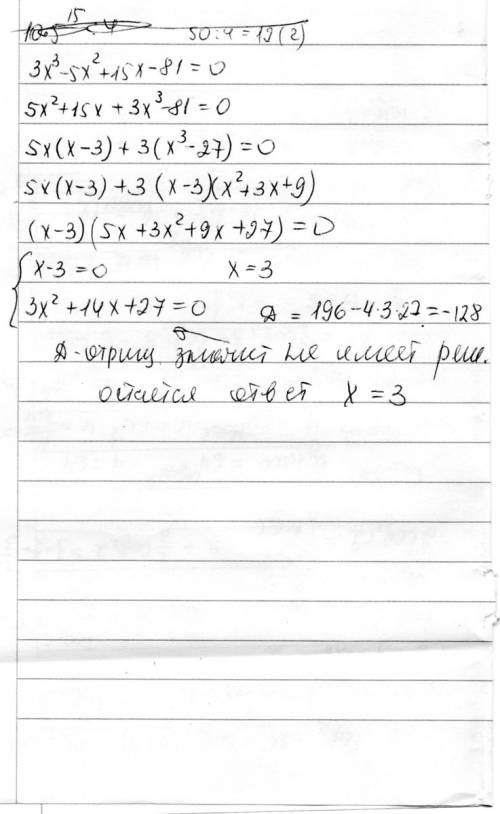 15
50:4=12(2)
3x³-5x²+15x-81=0
5x²+15x+3x³-81=0
5x(x-3)+3(x³-27)=0
5x(x-3)+3(x-3)(x²+3x+9)
(x-3)(5x+3x²+9x+27)=0
x-3=0 x=3
3x²+14x+27=0 Д=196-4·3·27=-128
Д-отриц. значит не имеет реше.
остается ответ x=3